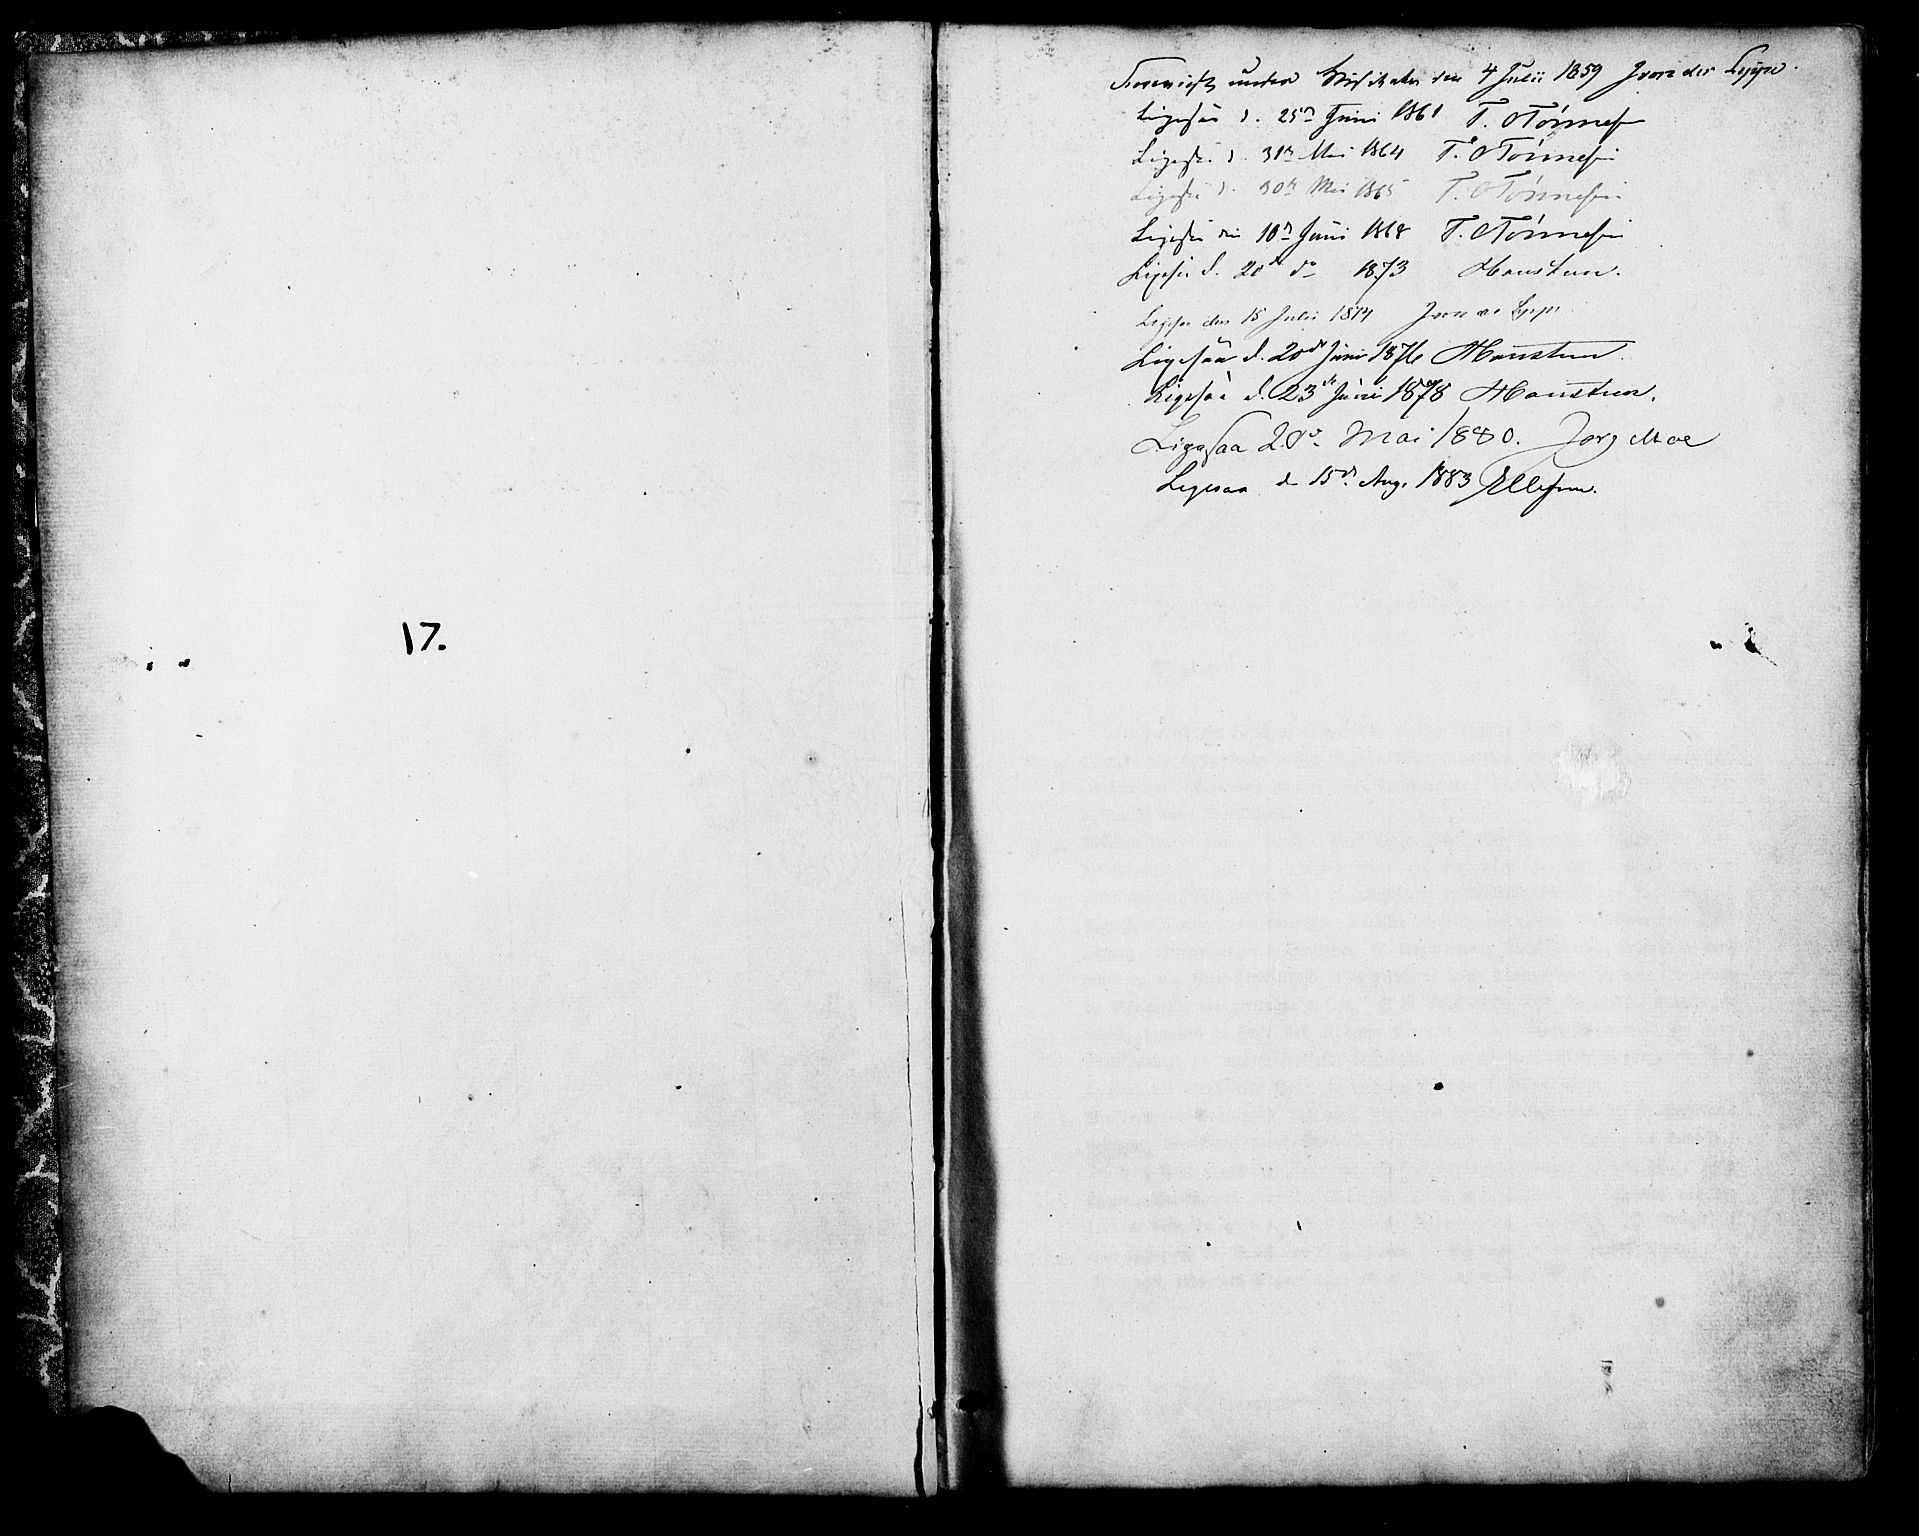 17.
Foreviist under Visitatsen den 4 Julii 1859 J von der Lippe.
Ligesaa d. 25de Juni 1861 T. O Tönnesen
Ligesaa d. 31te Mai 1864 T. O Tönnesen
Ligesaa d. 30te Mai 1865 T. O Tönnesen
Ligesaa den 10de Juni 1868 T. O Tönnesen
Ligesaa d. 20de do 1873
Ligesaa den 15 Julii 1874 J von der Lippe
Ligesaa d. 20de Juni 1876
Ligesaa d. 23de Juni 1878
Ligesaa Mai 1880. Jørg Moe
Ligesaa d 15de Aug. 1883